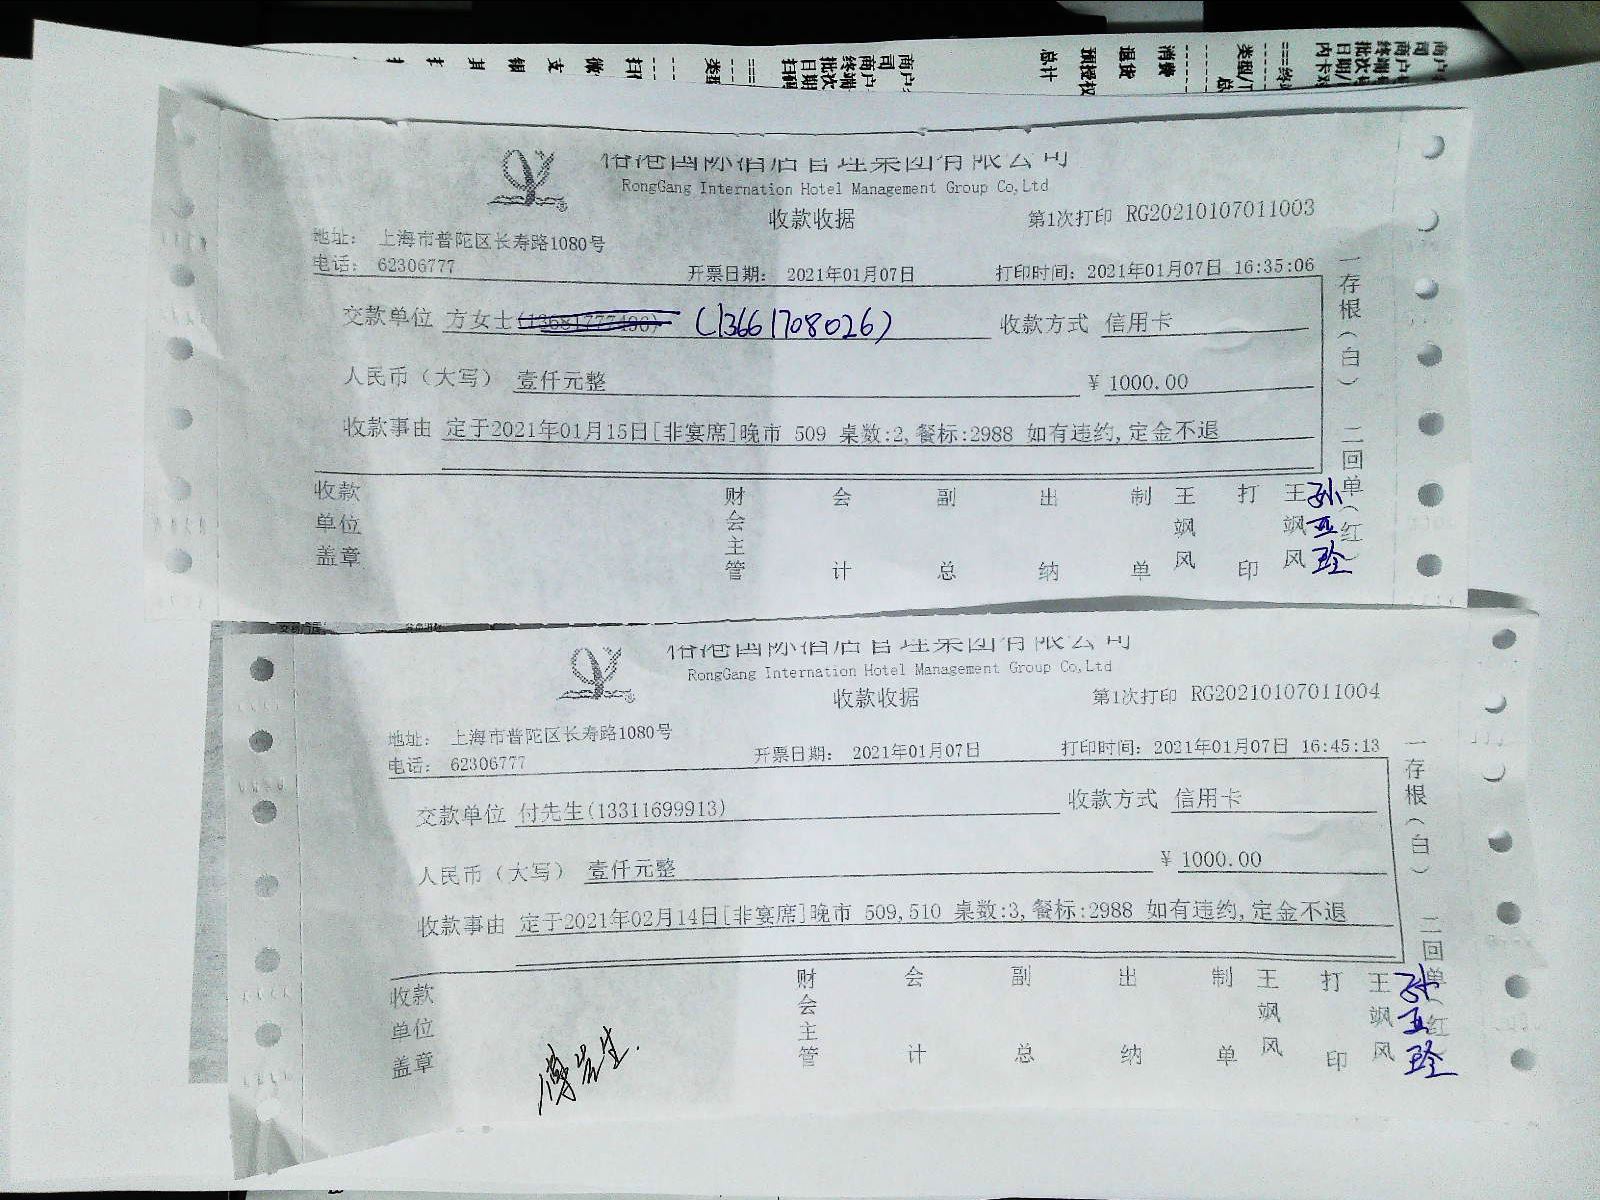 商户
司
商户
终端
批次
日期/
内卡对
===终
类型/T
总
消费
退货
预授权
总计
商户
司
商户
终端
批次
日期
扫码
===
类型
扫
微
支
银
其
国际酒店管理集团有限公司
RongGang Internation Hotel Management Group Co,Ltd
收款收据
第1次打印 RG20210107011003
地址: 上海市普陀区长寿路1080号
电话: 62306777
开票日期: 2021年01月07日
打印时间: 2021年01月07日 16:35:06
交款单位 方女士 (13661708026) 收款方式 信用卡
人民币(大写) 壹仟元整 ¥ 1000.00
收款事由 定于2021年01月15日[非宴席]晚市 509 桌数:2,餐标:2988 如有违约,定金不退
一存根(白) 二回单(红)
收款单位盖章 财会主管 会计 副总 出纳 制单 王飒风 打印 王飒风
孙亚玲
国际酒店管理集团有限公司
RongGang Internation Hotel Management Group Co,Ltd
收款收据
第1次打印 RG20210107011004
地址: 上海市普陀区长寿路1080号
电话: 62306777
开票日期: 2021年01月07日
打印时间: 2021年01月07日 16:45:13
交款单位 付先生(13311699913) 收款方式 信用卡
人民币(大写) 壹仟元整 ¥ 1000.00
收款事由 定于2021年02月14日[非宴席]晚市 509,510 桌数:3,餐标:2988 如有违约,定金不退
一存根(白) 二回单(红)
收款单位盖章 财会主管 会计 副总 出纳 制单 王飒风 打印 王飒风
孙亚玲
傅先生.